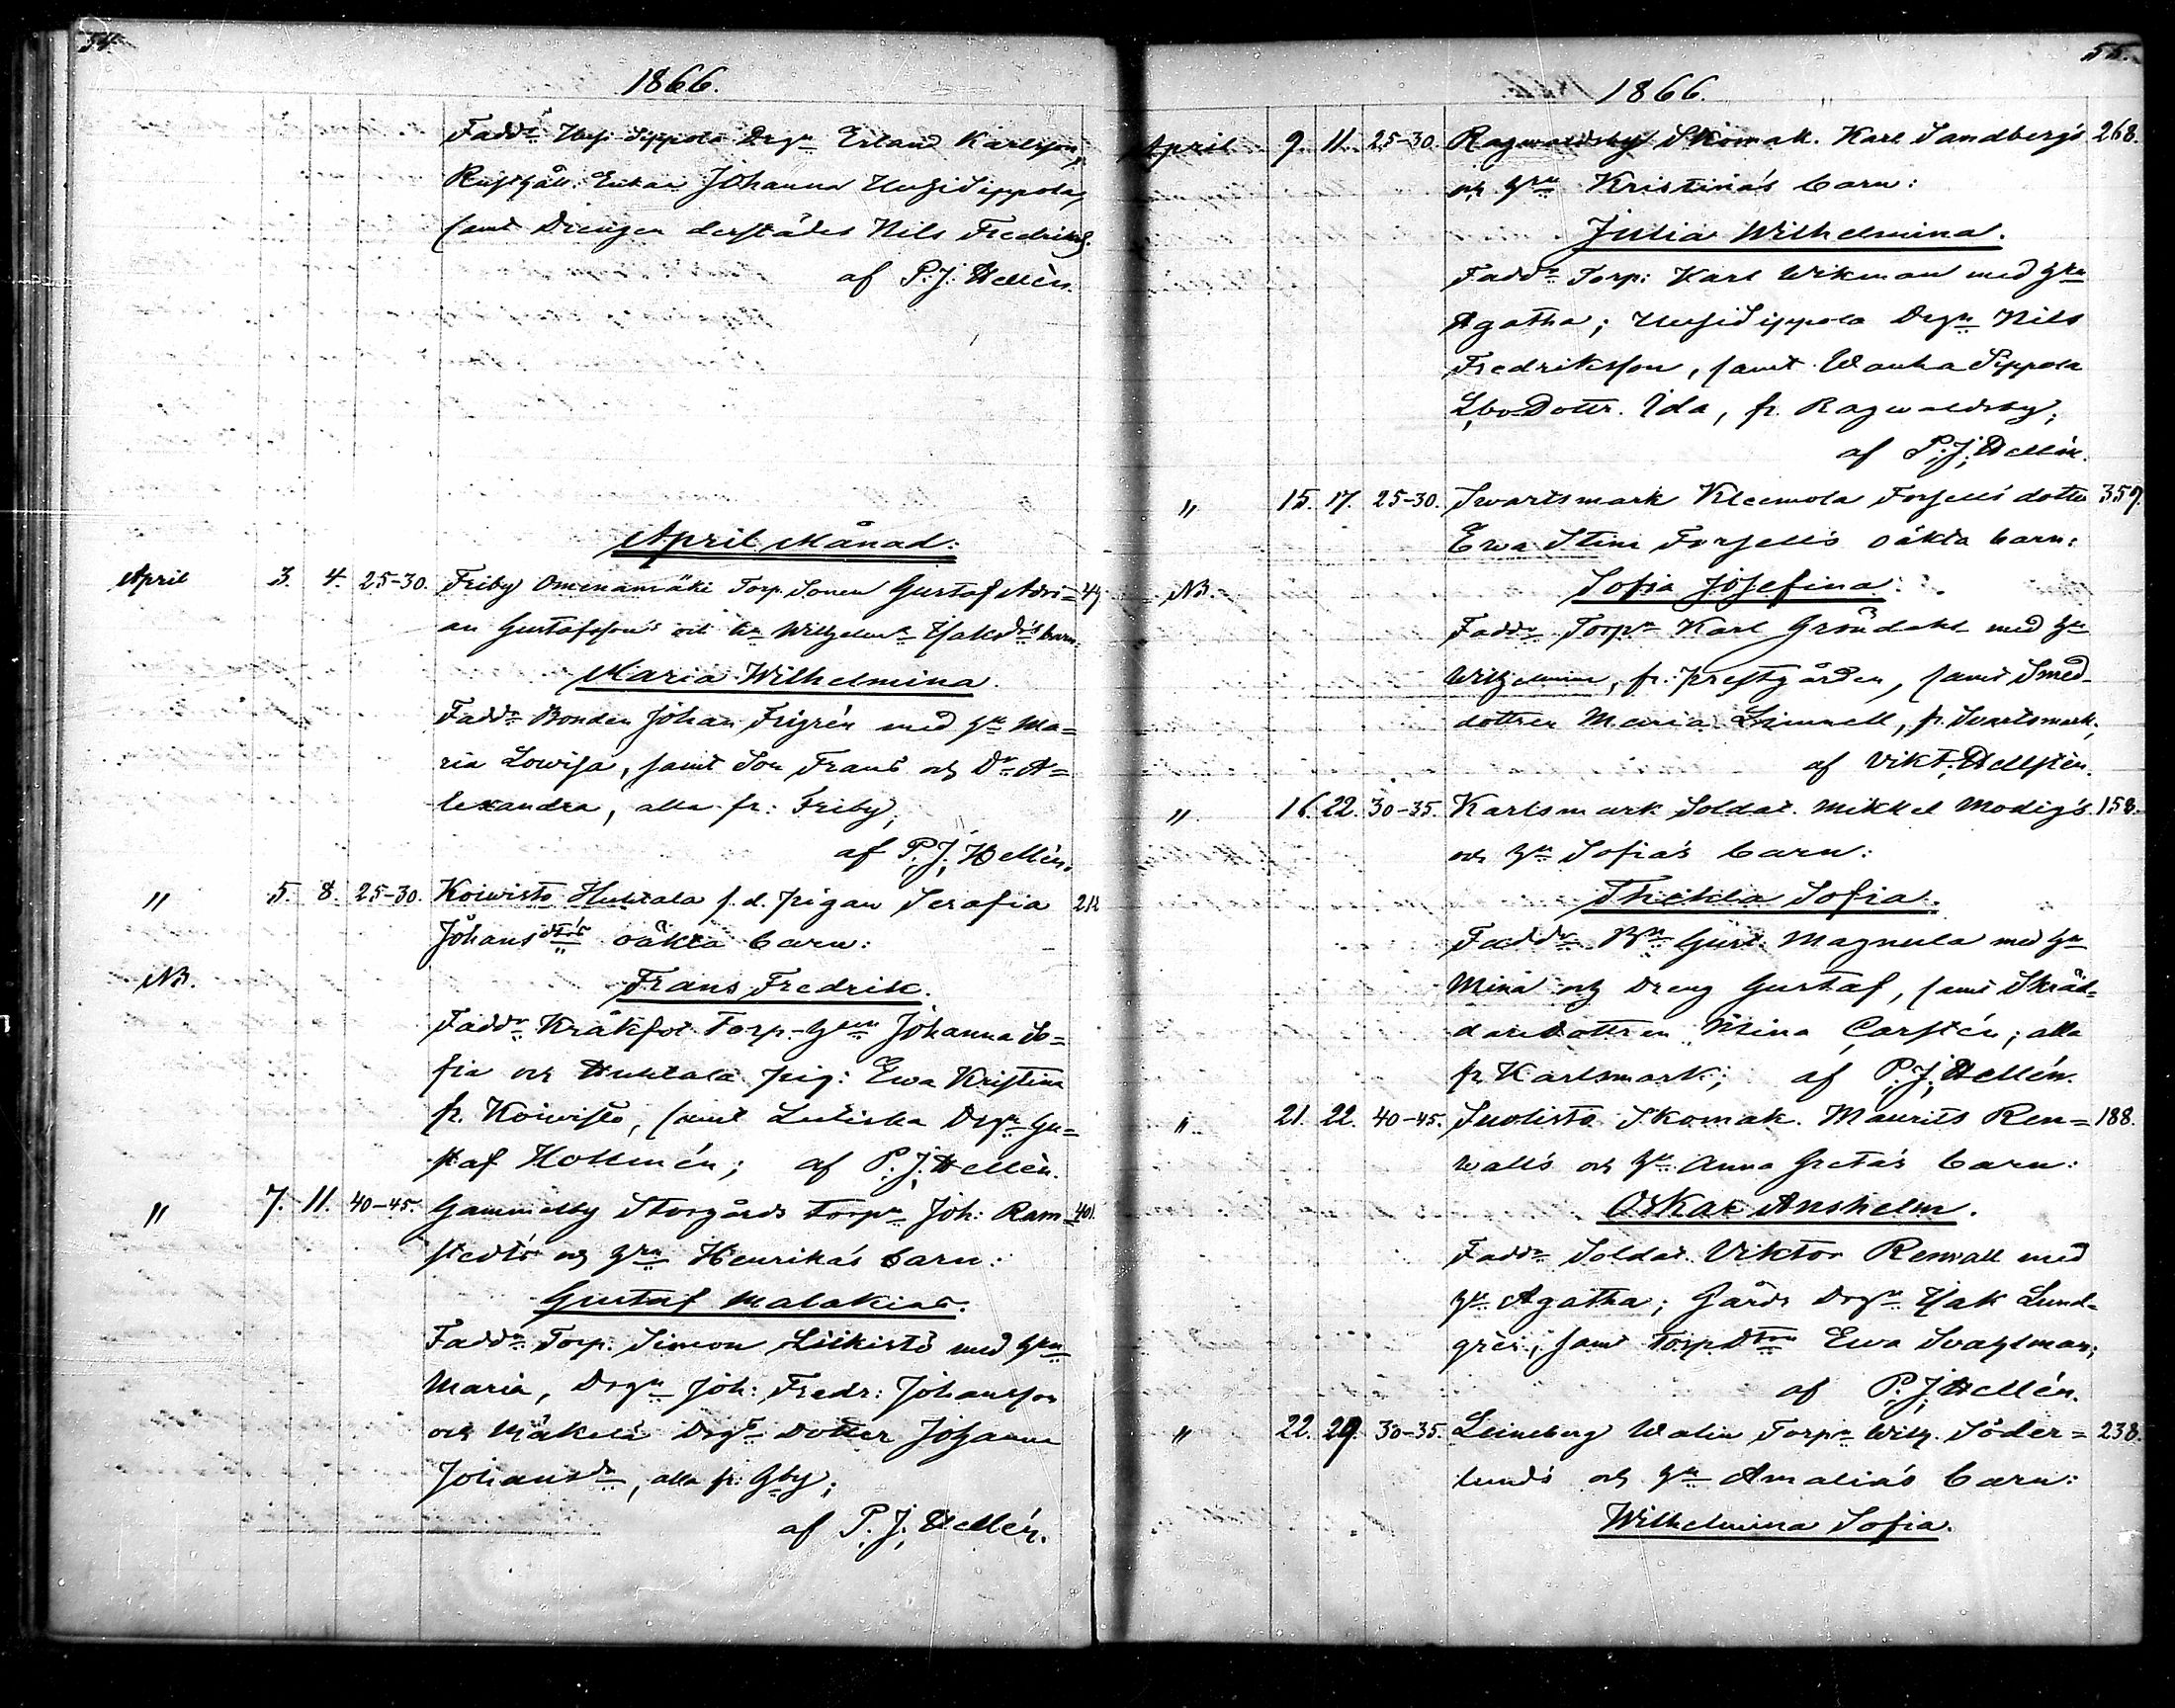 54.
1866.
Fadd:r Uusi Sippola Drgn Erland Karlsson,
Rusth:åll: Enkan Johanna UusiSippola,
samt Drengen derstädes Nils Fredriks.
af P. J. Hellén.
April Månad:
April 3. 4. 25-30. Friby Omenamäki Torp. Sonen Gustaf Adri= 49.
an Gustafsson's och h:u Wilhelm:a Isaksd:r's barn.
Maria Wilhelmina.
Fadd:r Bonden Johan Frigrén med h:u Ma=
ria Lowisa, samt Son Frans och D:r A=
lexandra, alla fr: Friby;
af P. J. Hellén.
" 5. 8. 25-30. Koivisto Huhtala f. d. pigan Serafia
Johansdtr's oäkta barn:
NB.
Frans Fredrik.
Fadd:r Kråkfot Torp. h:un Johanna So=
fia och Huhtala pig: Ewa Kristina
fr. Koivisto, samt Drgn Gu=
staf Hollmén; af P. J. Hellén.
" 7. 11. 40-45. Gammelby Storgårds Torpr Joh: Ram= 401.
stedts och h:un Henrika's barn:
Gustaf Malakias.
Fadd:r Torp: Simon Liikistö med h:un
Maria, Drgn Joh: Fredr: Johansson
och Mäkelä Drgs Dotter Johanna
Johansdr, alla fr: Gby;
af P. J. Hellén.
55.
1866.
April 9. 11. 25-30. Ragwaldsby Skomak. Karl Sandberg's 268.
och h:un Kristina's barn:
Julia Wilhelmina.
Fadd:r Torp: Karl Wikman med h:un
Agatha; UusiSippola Drgn Nils
Fredriksson, samt Wanha Sippola
Lbo-Dottr. Ida, fr. Ragwaldsby;
af P. J. Hellén.
" 15. 17. 25-30. Swartsmark Kleemola Forsell's dotter 359.
Ewa Stina Forsell's oäkta barn:
NB. Sofia Josefina.
Fadd:r Torpr Karl Gröndahl med h:u
Wilhelmina, fr: prestgården, samt Smed-
dottren Maria Limnell, fr. Svartsmark;
af Vikt. Hellstén.
" 16. 22. 30-35. Karlsmark Soldat. Mikkel Modig's 158.
och h:u Sofia's barn:
Thekla Sofia.
Fadd:r Bn Gust. Magnula med h:u
Mina och Dreng Gustaf, samt Skräd=
daredottren Mina Carstén; alla
fr Karlsmark; af P. J. Hellén.
" 21. 22. 40-45. Suolisto Skomak. Maurits Ren= 188.
wall's och h:u Anna Greta's barn:
Oskar Anshelm.
Fadd:r Soldat. Viktor Renvall med
h:u Agatha; Gårds Drgn Isak Lund=
grén, samt TorpDtrn Ewa Svahlman;
af P. J. Hellén.
" 22. 29. 30-35. Leineberg Walin Torpr Wilh. Söder= 238.
lund's och h:u Amalia's barn:
Wilhelmina Sofia.